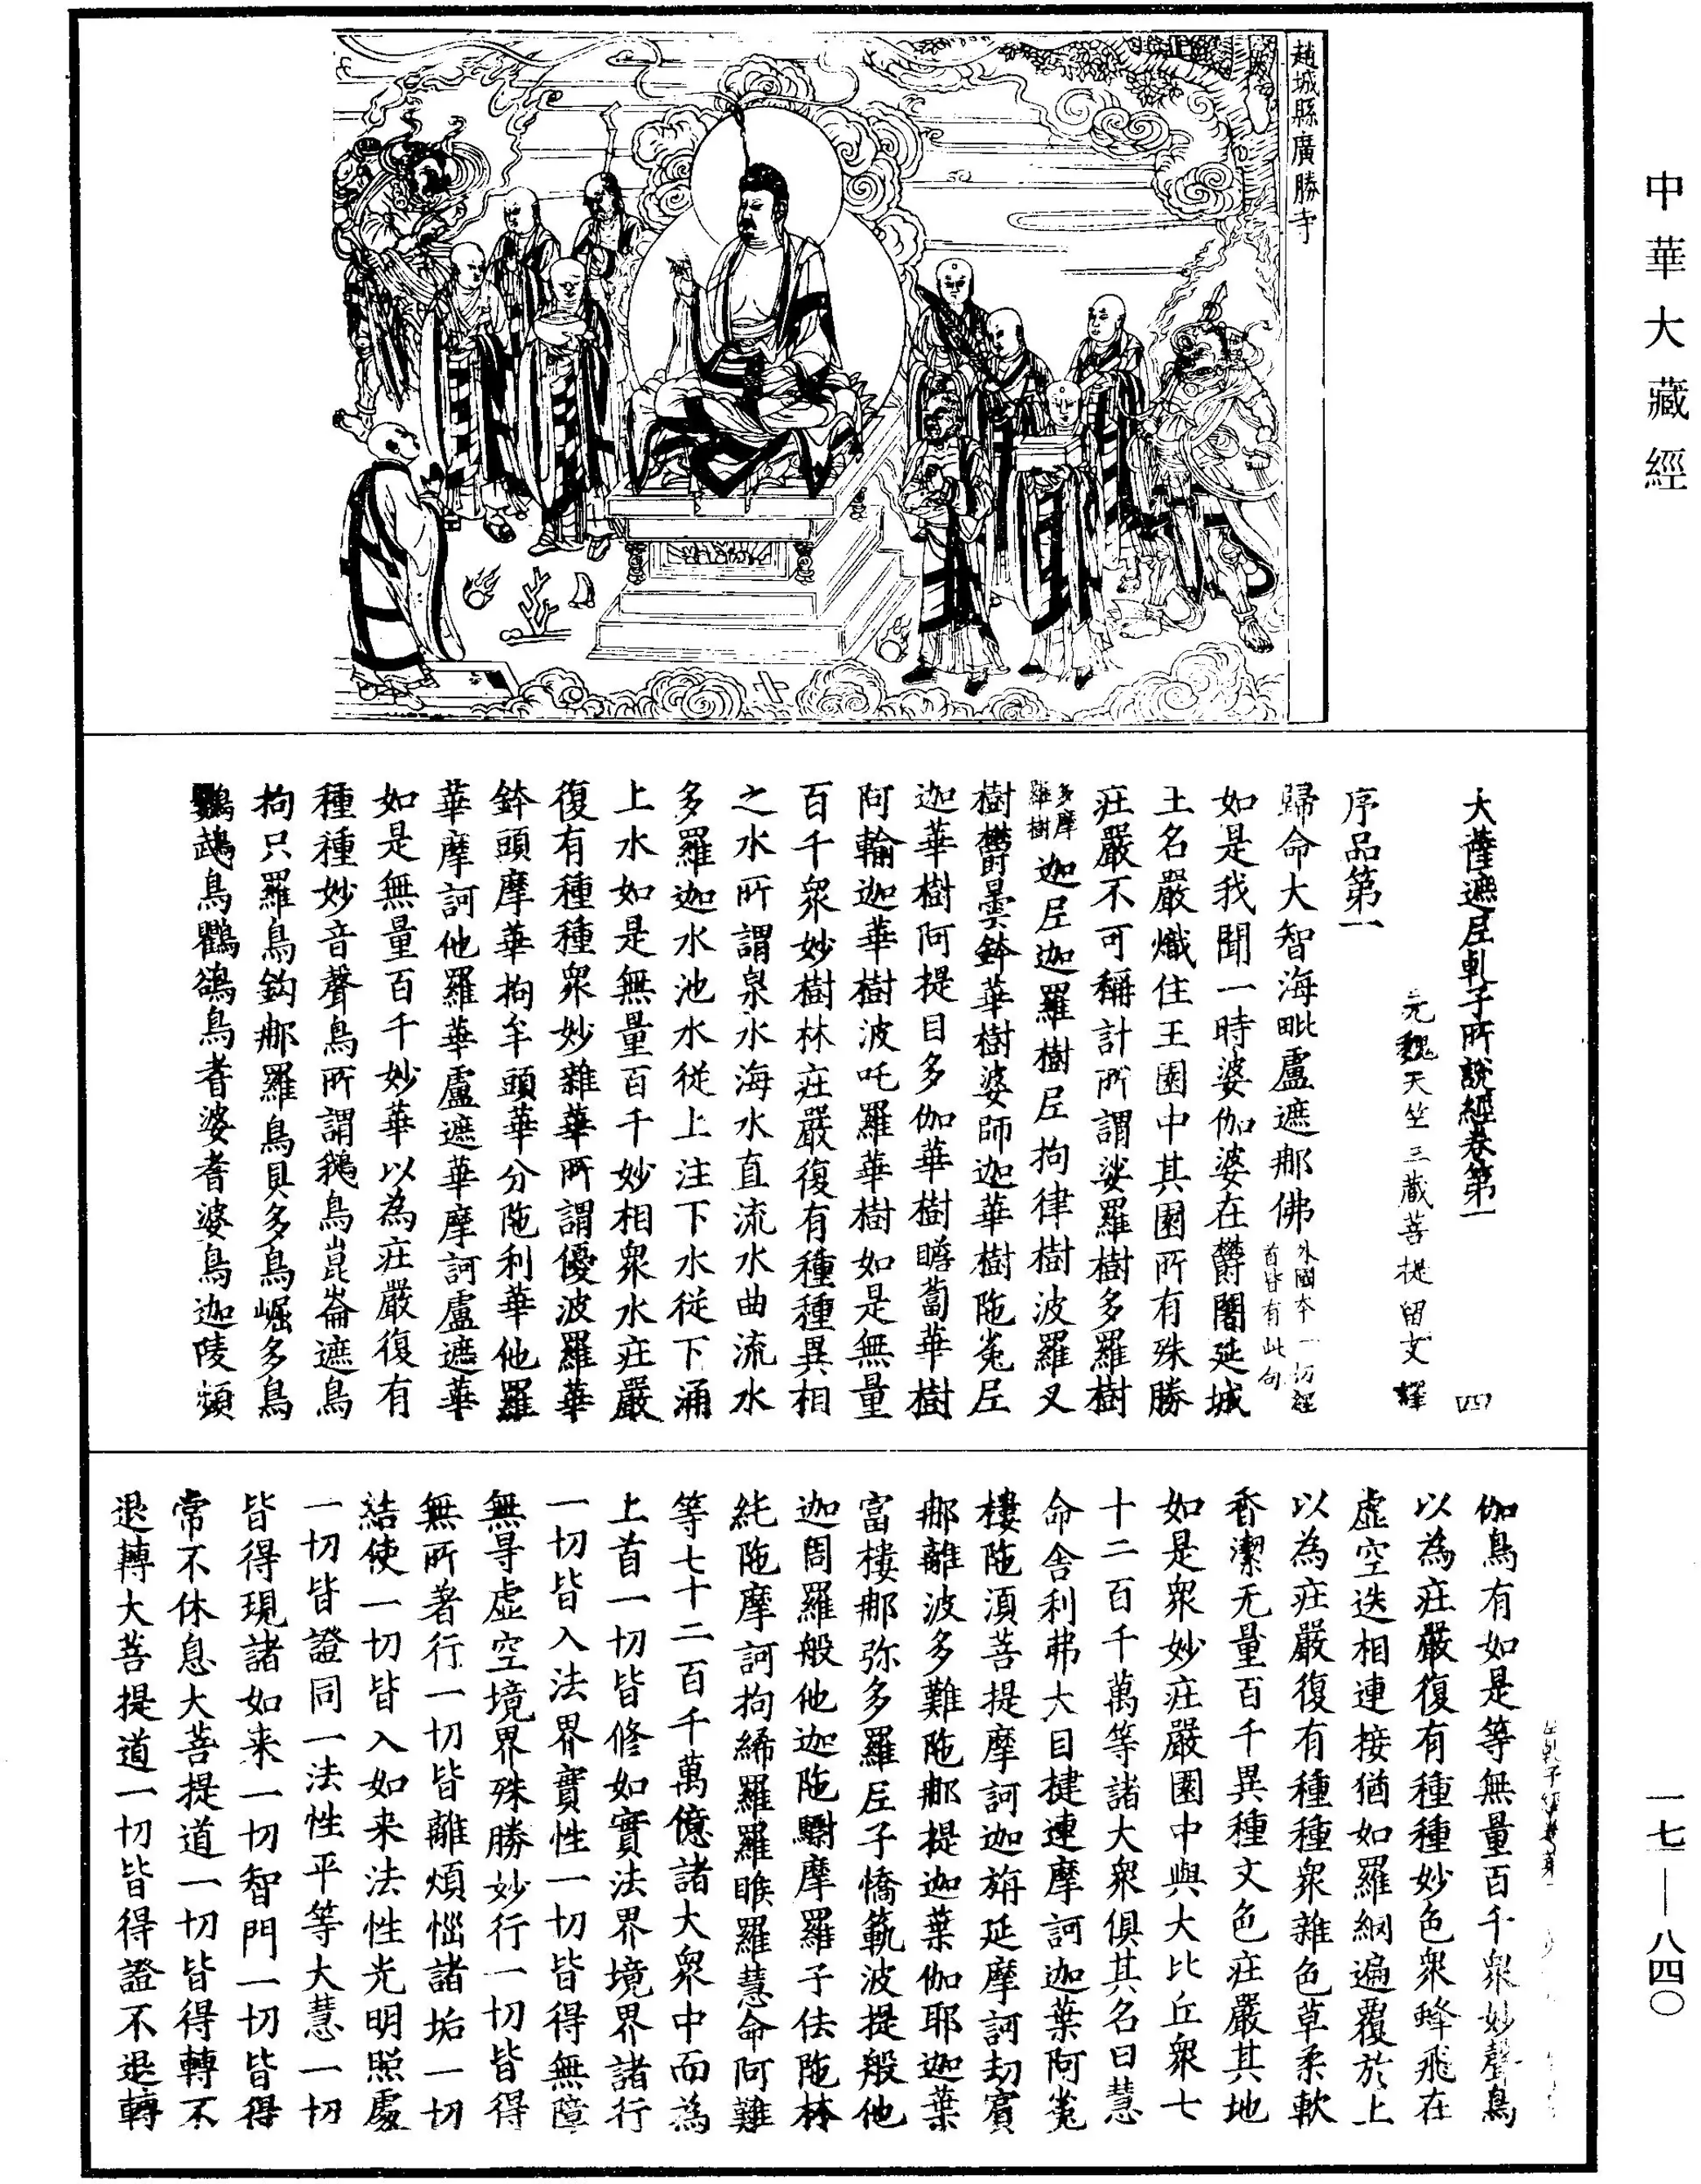 中華大藏經
趙城縣廣勝寺
大薩遮尼乹子所說經卷第一　四
元魏天竺三藏菩提留支譯
序品第一
歸命大智海毗盧遮那佛外國本一切經首皆有此句
如是我聞一時婆伽婆在欝闍延城
土名嚴熾住王園中其園所有殊勝
莊嚴不可稱計所謂娑羅樹多羅樹
多摩羅樹迦尼迦羅樹尼拘律樹波羅叉
樹欝曇鉢華樹婆師迦華樹陁㝹尼
迦華樹阿提目多伽華樹瞻蔔華樹
阿輸迦華樹波吒羅華樹如是無量
百千衆妙樹林莊嚴復有種種異相
之水所謂泉水海水直流水曲流水
多羅迦水池水從上注下水從下涌
上水如是無量百千妙相衆水莊嚴
復有種種衆妙雜華所謂優波羅華
鉢頭摩華拘牟頭華分陁利華他羅
華摩訶他羅華盧遮華摩訶盧遮華
如是無量百千妙華以為莊嚴復有
種種妙音聲鳥所謂鵝鳥崑崙遮鳥
拘只羅鳥鈎那羅鳥貝多鳥崛多鳥
鸚鵡鳥鸜鵒鳥耆婆耆婆鳥迦陵頻
伽鳥有如是等無量百千衆妙聲鳥
以為莊嚴復有種種妙色衆蜂飛在
虛空迭相連接猶如羅網遍覆於上
以為莊嚴復有種種衆雜色草柔軟
香潔无量百千異種文色莊嚴其地
如是衆妙莊嚴園中與大比丘衆七
十二百千萬等諸大衆俱其名曰慧
命舍利弗大目揵連摩訶迦葉阿㝹
樓陁湏菩提摩訶迦旃延摩訶劫賓
那離波多難陁那提迦葉伽耶迦葉
富樓那弥多羅尼子憍範波提般他
迦周羅般他迦陁驃摩羅子佉陁林
純陁摩訶拘絺羅羅睺羅慧命阿難
等七十二百千萬億諸大衆中而為
上首一切皆修如實法界境界諸行
一切皆入法界實性一切皆得無障
無㝵虛空境界殊勝妙行一切皆得
無所著行一切皆離煩惱諸垢一切
結使一切皆入如来法性光明照處
一切皆證同一法性平等大慧一切
皆得現諸如来一切智門一切皆得
常不休息大菩提道一切皆得轉不
退轉大菩提道一切皆得證不退轉
一七—八四〇